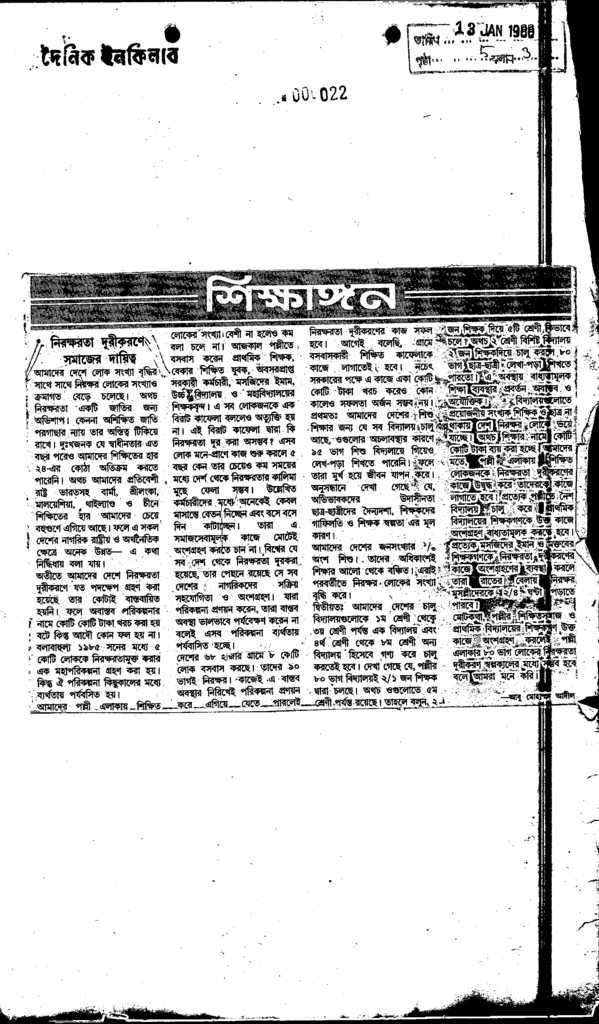 দৈনিক ইনকিলাব
তারিখ ... 13 JAN 1988
পৃষ্ঠা ... 5 কলাম 3
022
শিক্ষাঙ্গন
নিরক্ষরতা দূরীকরণে
সমাজের দায়িত্ব
আমাদের দেশে লোক সংখ্যা বৃদ্ধির
সাথে সাথে নিরক্ষর লোকের সংখ্যাও
ক্রমাগত বেড়ে চলেছে। অথচ
নিরক্ষরতা একটি জাতির জন্য
অভিশাপ। কেননা অশিক্ষিত জাতি
পরগাছার ন্যায় তার অস্তিত্ব টিকিয়ে
রাখে। দুঃখজনক যে স্বাধীনতার এত
বছর পরেও আমাদের শিক্ষিতের হার
২৪-এর কোঠা অতিক্রম করতে
পারেনি। অথচ আমাদের প্রতিবেশী
রাষ্ট্র ভারতসহ বার্মা, শ্রীলংকা,
মালয়েশিয়া, থাইল্যাণ্ড ও চীনে
শিক্ষিতের হার আমাদের চেয়ে
বহুগুণে এগিয়ে আছে। ফলে এ সকল
দেশের নাগরিক রাষ্ট্রীয় ও অর্থনৈতিক
ক্ষেত্রে অনেক উন্নত— এ কথা
নির্দ্বিধায় বলা যায়।
অতীতে আমাদের দেশে নিরক্ষরতা
দূরীকরণে যত পদক্ষেপ গ্রহণ করা
হয়েছে তার কোটাই বাস্তবায়িত
হয়নি। ফলে অবাস্তব পরিকল্পনার
নামে কোটি কোটি টাকা খরচ করা হয়
বটে কিন্তু আদৌ কোন ফল হয় না।
বলাবাহুল্য ১৯৮৫ সনের মধ্যে ৫
কোটি লোককে নিরক্ষরতামুক্ত করার
এক মহাপরিকল্পনা গ্রহণ করা হয়।
কিন্তু ঐ পরিকল্পনা কিছুকালের মধ্যে
ব্যর্থতায় পর্যবসিত হয়।
আমাদের পল্লী এলাকায় শিক্ষিত
লোকের সংখ্যা বেশী না হলেও কম
বলা চলে না। আজকাল পল্লীতে
বসবাস করেন প্রাথমিক শিক্ষক,
বেকার শিক্ষিত যুবক, অবসরপ্রাপ্ত
সরকারী কর্মচারী, মসজিদের ইমাম,
উচ্চ বিদ্যালয় ও মহাবিদ্যালয়ের
শিক্ষকবৃন্দ। এ সব লোকজনকে এক
বিরাট কাফেলা বললেও অত্যুক্তি হয়
না। এই বিরাট কাফেলা দ্বারা কি
নিরক্ষরতা দূর করা অসম্ভব? এসব
লোক মনে-প্রাণে কাজ শুরু করলে ৫
বছর কেন তার চেয়েও কম সময়ের
মধ্যে দেশ থেকে নিরক্ষরতার কালিমা
মুছে ফেলা সম্ভব। উল্লেখিত
কর্মচারীদের মধ্যে অনেকেই কেবল
মাসান্তে বেতন নিচ্ছেন এবং বসে বসে
দিন কাটাচ্ছেন। তারা এ
সমাজসেবামূলক কাজে মোটেই
অংশগ্রহণ করতে চান না। বিশ্বের যে
সব দেশ থেকে নিরক্ষরতা দূরকরা
হয়েছে, তার পেছনে রয়েছে সে সব
দেশের নাগরিকদের সক্রিয়
সহযোগিতা ও অংশগ্রহণ। যারা
পরিকল্পনা প্রণয়ন করেন, তারা বাস্তব
অবস্থা ভালভাবে পর্যবেক্ষণ করেন না
বলেই এসব পরিকল্পনা ব্যর্থতায়
পর্যবসিত হচ্ছে।
দেশের ৬৮ হাজার গ্রামে ৮ কোটি
লোক বসবাস করছে। তাদের ৯০
ভাগই নিরক্ষর। কাজেই এ বাস্তব
অবস্থার নিরিখেই পরিকল্পনা প্রণয়ন
করে এগিয়ে যেতে পারলেই
নিরক্ষরতা দূরীকরণের কাজ সফল
হবে। আগেই বলেছি, গ্রামে
বসবাসকারী শিক্ষিত কাফেলাকে
কাজে লাগাতেই হবে। নচেৎ
সরকারের পক্ষে এ কাজে একা কোটি
কোটি টাকা খরচ করেও কোন
কালেও সফলতা অর্জন সম্ভব নয়।
প্রথমতঃ আমাদের দেশের শিশু
শিক্ষার জন্য যে সব বিদ্যালয় চালু
আছে, ওগুলোর অচলাবস্থার কারণে
৯৫ ভাগ শিশু বিদ্যালয়ে গিয়েও
লেখ-পড়া শিখতে পারেনি। ফলে
তারা মূর্খ হয়ে জীবন যাপন করে।
অনুসন্ধানে দেখা গেছে যে,
অভিভাবকদের উদাসীনতা
ছাত্র-ছাত্রীদের দৈন্যদশা, শিক্ষকদের
গাফিলতি ও শিক্ষক স্বল্পতা এর মূল
কারণ।
আমাদের দেশের জনসংখ্যার
অংশ শিশু। তাদের অধিকাংশই
শিক্ষার আলো থেকে বঞ্চিত। এরাই
পরবর্তীতে নিরক্ষর লোকের সংখ্যা
বৃদ্ধি করে।
দ্বিতীয়তঃ আমাদের দেশের চালু
বিদ্যালয়গুলোকে ১ম শ্রেণী থেকে
৩য় শ্রেণী পর্যন্ত এক বিদ্যালয় এবং
৪র্থ শ্রেণী থেকে ৮ম শ্রেণী অন্য
বিদ্যালয় হিসেবে গণ্য করে চালু
করতেই হবে। দেখা গেছে যে, পল্লীর
৮০ ভাগ বিদ্যালয়ই ২/১ জন শিক্ষক
দ্বারা চলছে। অথচ ওগুলোতে ৫ম
শ্রেণী পর্যন্ত রয়েছে। তাহলে বলুন, ২
জন শিক্ষক দিয়ে ৫টি শ্রেণী কিভাবে
চলে? অথচ ২ শ্রেণী বিশিষ্ট বিদ্যালয়
২ জন শিক্ষকদিয়ে চালু করলে ৮০
ভাগ ছাত্র-ছাত্রী লেখা-পড়া শিখতে
পারতো। এ অবস্থায় বাধ্যতামূলক
শিক্ষা ব্যবস্থার প্রবর্তন অবাস্তব ও
অযৌক্তিক। বিদ্যালয়গুলোতে
প্রয়োজনীয় সংখ্যক শিক্ষক ও ছাত্র না
থাকায় দেশ নিরক্ষর লোকে ভরে
যাচ্ছে। অথচ শিক্ষার নামে কোটি
কোটি টাকা ব্যয় করা হচ্ছে। আমাদের
মতে, পল্লী এলাকায় শিক্ষিত
লোকজনকে নিরক্ষরতা দূরীকরণের
কাজে উদ্বুদ্ধ করে তাদেরকে কাজে
লাগাতে হবে। প্রত্যেক পল্লীতে নৈশ
বিদ্যালয় চালু করে প্রাথমিক
বিদ্যালয়ের শিক্ষকগণকে উক্ত কাজে
অংশগ্রহণ বাধ্যতামূলক করতে হবে।
প্রত্যেক মসজিদের ইমাম ও মক্তবের
শিক্ষকগণকে নিরক্ষরতা দূরীকরণের
কাজে অংশগ্রহণের ব্যবস্থা করলে
তারা রাতের বেলায় নিরক্ষর
মুসল্লীদেরকে ১২/৪ ঘন্টা পড়াতে
পারবে।
মোটকথা, পল্লীর শিক্ষিত সমাজ ও
প্রাথমিক বিদ্যালয়ের শিক্ষকগণ উক্ত
কাজে অংশগ্রহণ করলেই পল্লী
এলাকার ৮০ ভাগ লোকের নিরক্ষরতা
দূরীকরণ স্বল্পকালের মধ্যে সম্ভব হবে
বলে আমরা মনে করি।
— আবু মোহাম্মদ আদীল